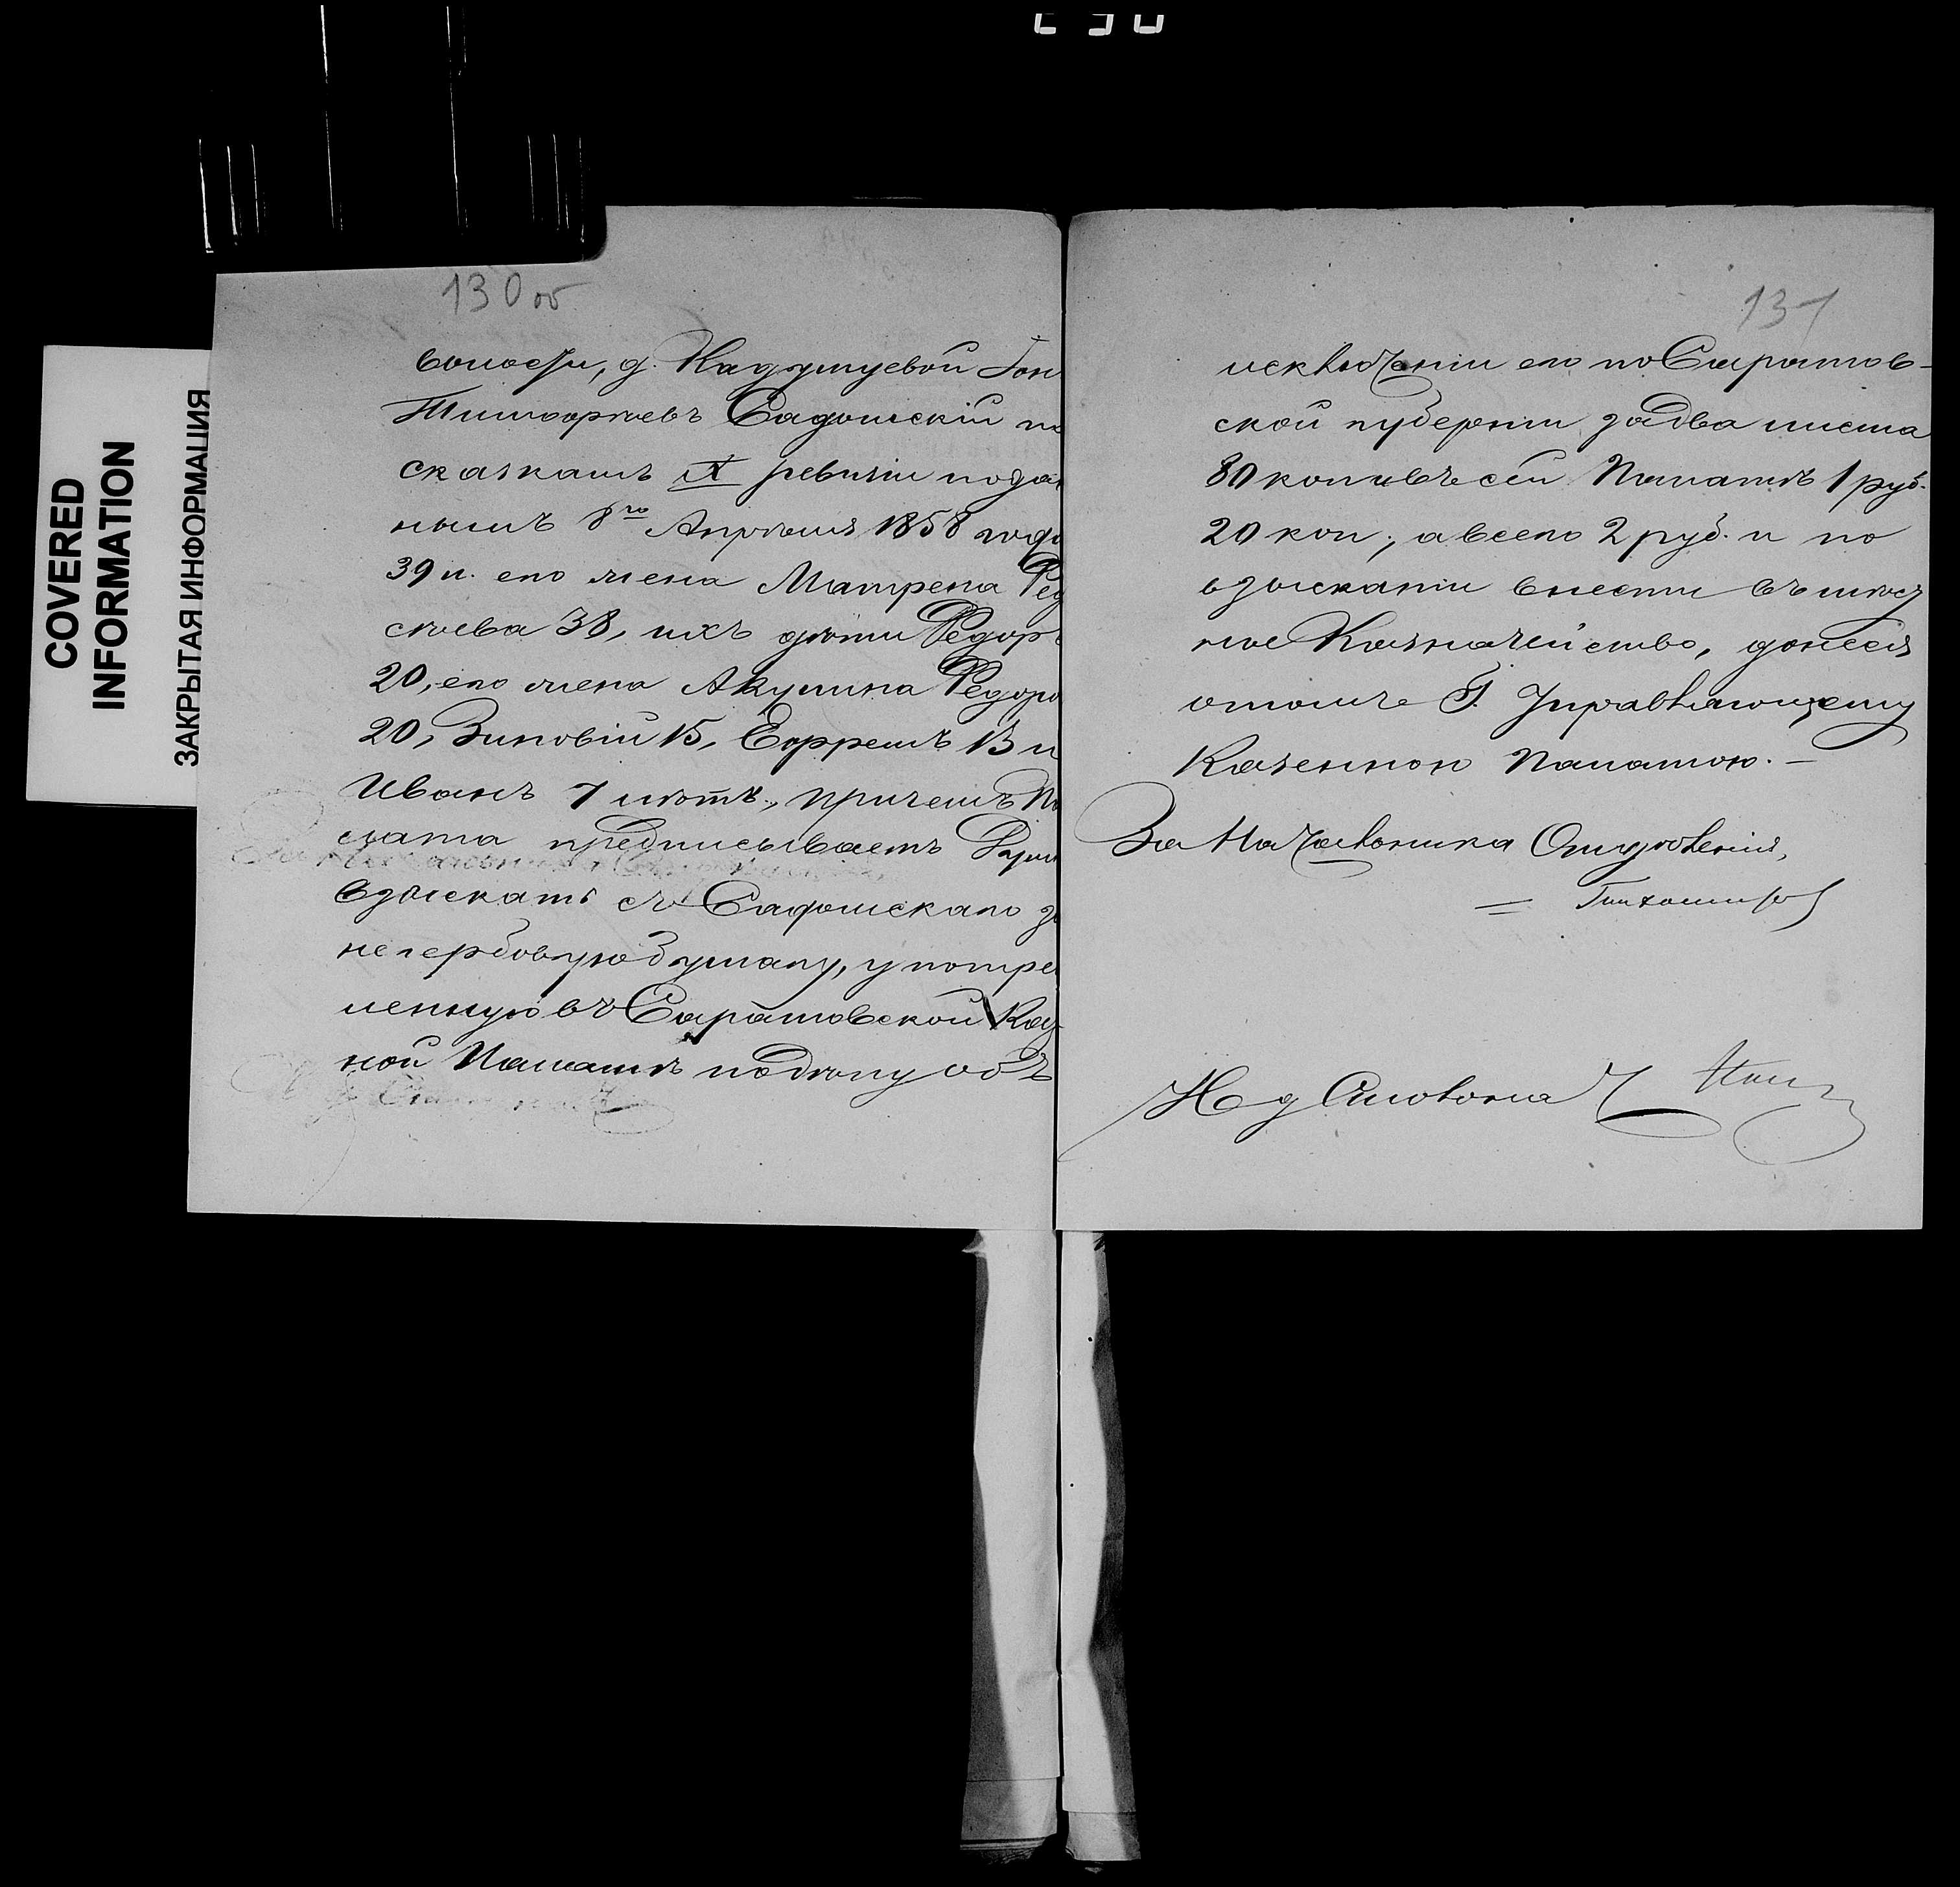 COVERED
INFORMATION
ЗАКРЫТАЯ ИНФОРМАЦИЯ
130 об
волости, д.
Тимофѣевъ Садомскій по
сказкамъ X ревизіи подан
нымъ 8го Апрѣля 1858 года
39 л. его жена Матрена
38, ихъ дѣти Федоръ
20, его жена Акулина Федоро
20, Зиновій 15, Ефремъ 13 и
Иванъ 7 лѣтъ, причемъ Па
лата предписываетъ Думѣ
взыскать съ Садомскаго за
негербовую бумагу, употреб
ленную въ Саратовской Казен
ной Палатѣ по дѣлу объ
131
исключеніи его по Саратов-
ской губерніи за два листа
80 коп и въ сей Палатѣ 1 руб.
20 коп., а всего 2 руб. и по
взысканіи внести въ мѣст
ное Казначейство, донеся
о томъ Г. Управляющему
Казенною Палатою. —
За Начальника Отдѣленія,
Тихомиров